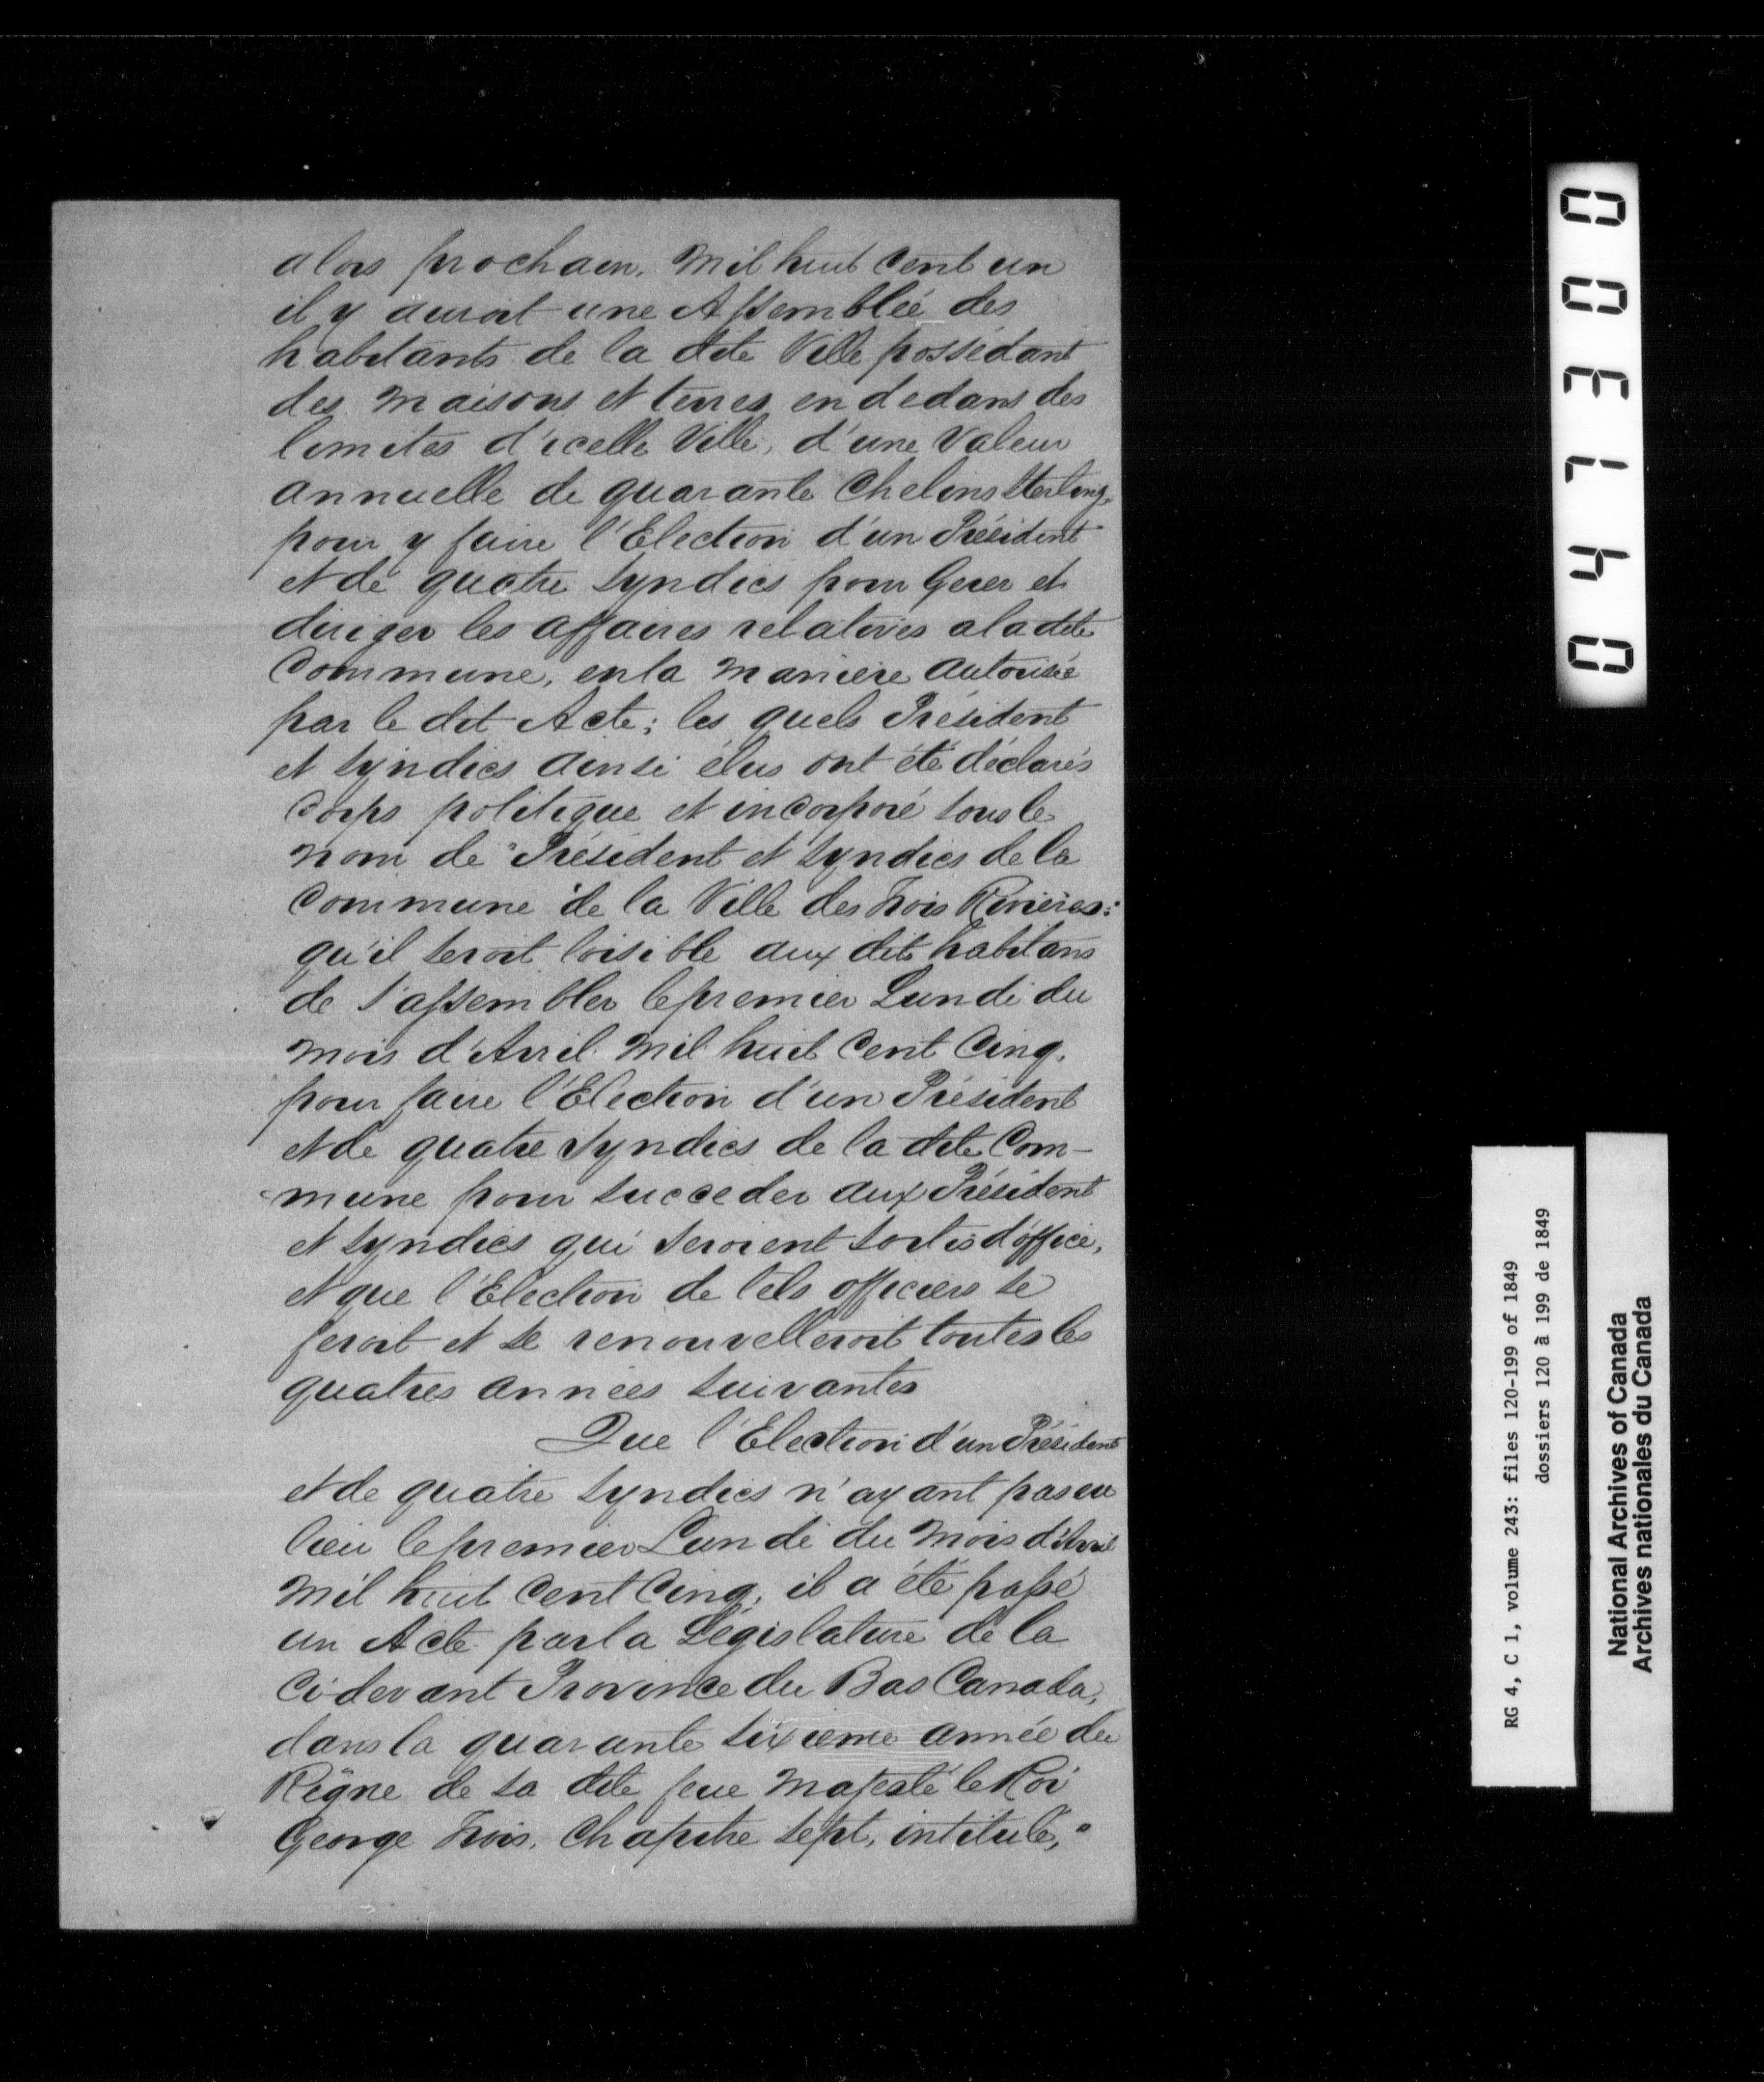 alors prochain. Mil huit Cent un
il y auroit une Assemblée des
habitants de la dite Ville possédant
des Maisons et terres en dedans des
limites d'icelle Ville, d'une Valeur
annuelle de quarante Chelins Sterling,
pour y faire l'Election d'un Président
et de quatre Syndics pour Gerer et
diriger les affaires relatives a la dite
Commune, en la Maniere autorisée
par le dit Acte; les quels Président
et Syndics ainsi élus ont été déclarés
Corps politique et incorporé sous le
nom de "Président et Syndics de la
Commune de la Ville des Trois Rivières:
qu'il seroit loisible aux dits habitans
de s'assembler le premier Lundi du
Mois d'Avril Mil huit Cent Cinq.
pour faire l'Election d'un Président
et de quatre Syndics de la dite Com-
mune pour succeder aux Président
et Syndics qui seroient sortis d'office,
et que l'Election de tels officiers se
feroit et se renouvelleroit toutes les
quatres années suivantes
Que l'Election d'un Président
et de quatre Syndics n'ayant pas eu
lieu le premier Lundi du Mois d'Avril
Mil huit Cent Cinq, il a été passé
un Acte par la Législature de la
Ci-devant Province du Bas Canada,
dans la quarante sixieme année du
Règne de sa dite feue Majesté le Roi
George Trois, Chapitre sept, intitulé, "
047300
RG 4, C 1, volume 243: files 120-199 of 1849
dossiers 120 à 199 de 1849
National Archives of Canada
Archives nationales du Canada